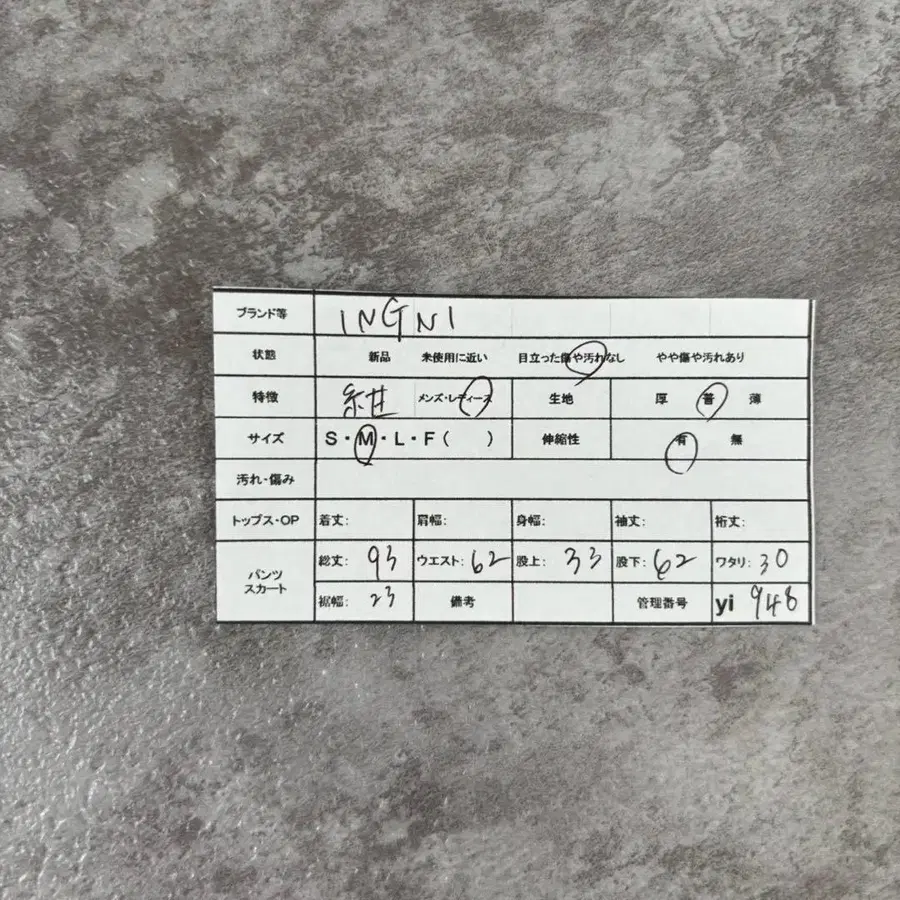 ブランド等 INGNI
状態 新品 未使用に近い 目立った傷や汚れなし やや傷や汚れあり
特徴 紺 メンズ・レディース 生地 厚 普 薄
サイズ S・M・L・F( ) 伸縮性 有 無
汚れ・傷み
トップス・OP 着丈: 肩幅: 身幅: 袖丈: 裄丈:
パンツ スカート 総丈: 93 ウエスト: 62 股上: 33 股下: 62 ワタリ: 30
裾幅: 23 備考 管理番号 yi 948